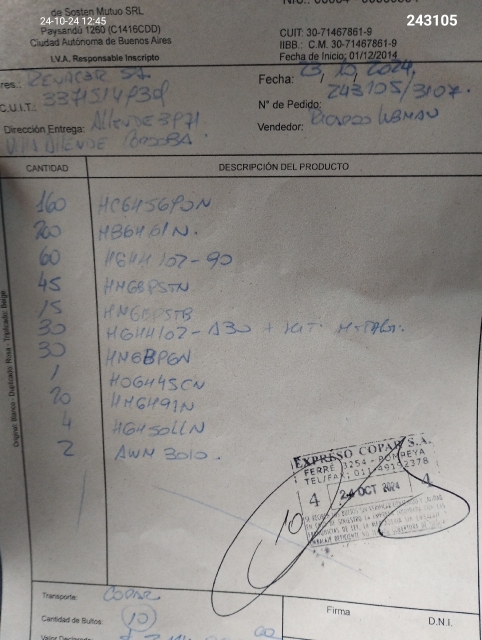 24-10-24 12:45
243105
de Sosten Mutuo SRL
Paysandú 1260 (C1416CDD)
Ciudad Autónoma de Buenos Aires
I.V.A. Responsable Inscripto
CUIT: 30-71467861-9
IIBB.: C.M. 30-71467861-9
Fecha de Inicio: 01/12/2014
res.: REVACAR SA.
Fecha: 23, 10, 2024.
C.U.I.T.:
N° de Pedido: 243105/3107.
Dirección Entrega: ALLENDE 3971
Vendedor: RICARDO
VILLA ALLENDE CORDOBA.
CANTIDAD DESCRIPCIÓN DEL PRODUCTO
160 HCG4456PON
200 HBG4461N.
60 HGH4102-90
45 HMGBPSTN
15
30 HGH4102-A30 + KIT.
30 HNGBPGN
1 HOG44SCN
20 HMG4491N
4 HG4450LLN
2 AWM 3010.
Original: Blanco - Duplicado: Rosa - Triplicado: Beige
EXPRESO COPAR S.A.
FERRÉ 3254 - POMPEYA
TEL/FAX: 011-49192378
4 24 OCT 2024 4
10
Transporte: COPAR
Cantidad de Bultos: 10
Firma
D.N.I.